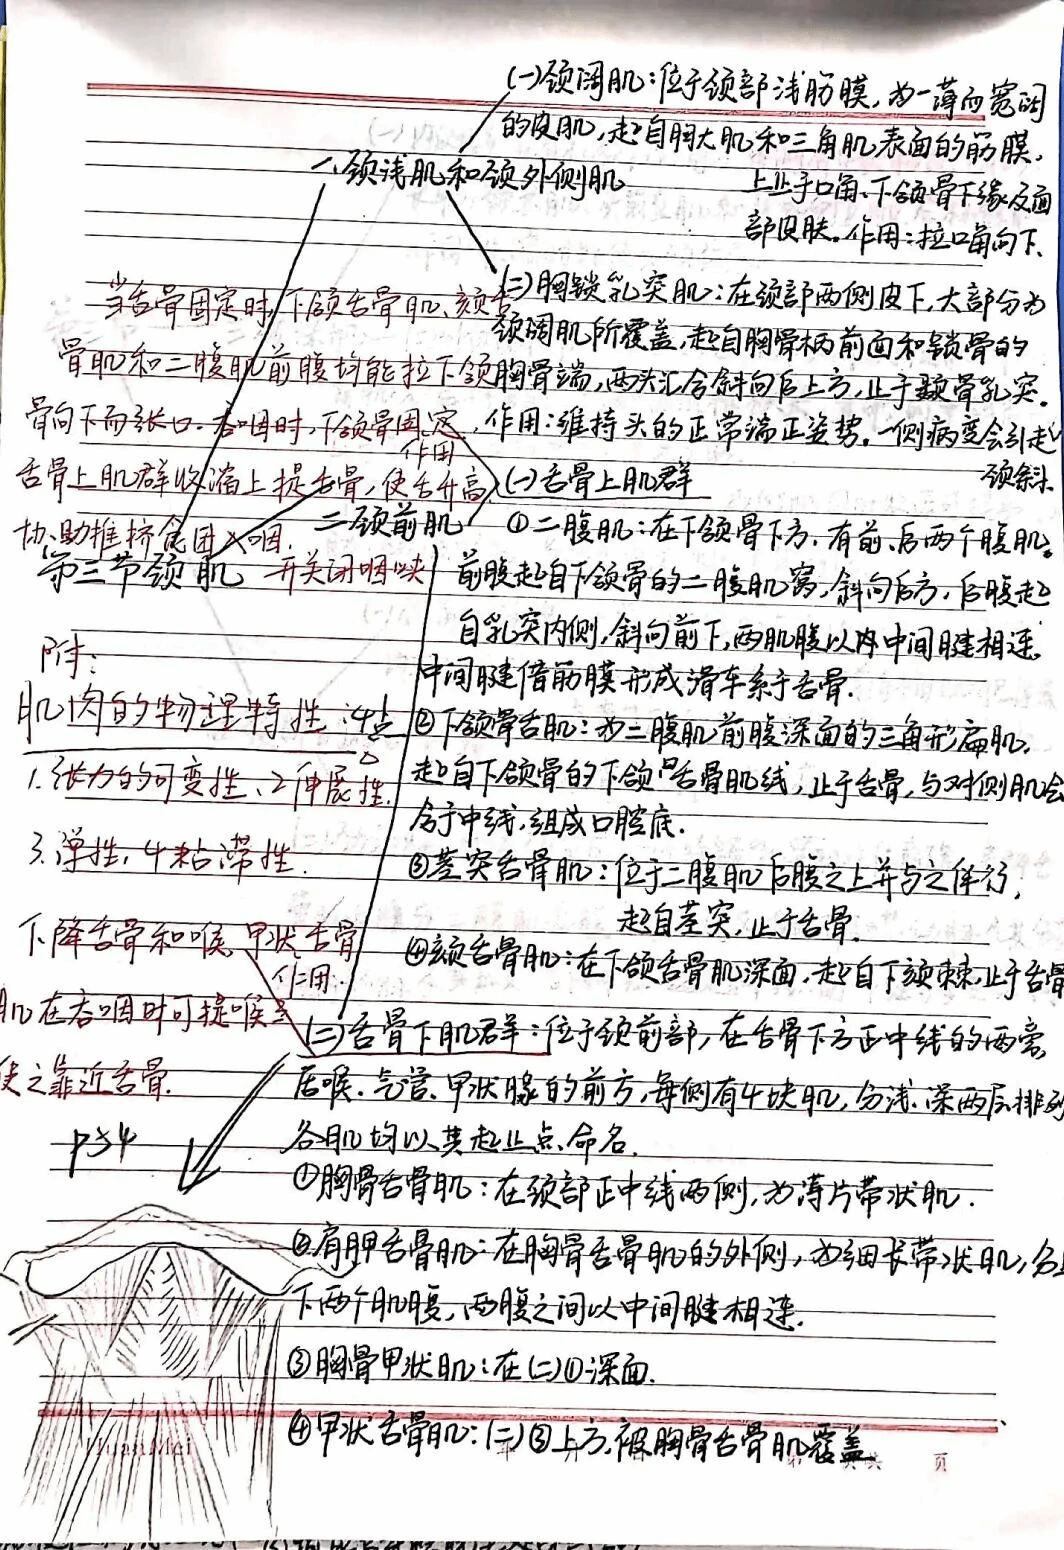 (一)颈阔肌：位于颈部浅筋膜，为一薄而宽阔
的皮肌，起自胸大肌和三角肌表面的筋膜，
上止于口角、下颌骨下缘及面
部皮肤。作用：拉口角向下.
一.颈浅肌和颈外侧肌
(二)胸锁乳突肌：在颈部两侧皮下，大部分为
颈阔肌所覆盖，起自胸骨柄前面和锁骨的
胸骨端，两头汇合斜向后上方，止于颞骨乳突。
作用：维持头的正常端正姿势。一侧病变会引起
颈斜.
当舌骨固定时，下颌舌骨肌、颏舌
骨肌和二腹肌前腹均能拉下颌
骨向下而张口。吞咽时，下颌骨固定，
舌骨上肌群收缩上提舌骨，使舌升高
协助推挤食团入咽.
开关闭咽峡
作用
二.颈前肌
第三节颈肌
(一)舌骨上肌群
①二腹肌：在下颌骨下方，有前、后两个腹肌。
前腹起自下颌骨的二腹肌窝，斜向后方，后腹起
自乳突内侧，斜向前下，两肌腹以中间腱相连.
中间腱借筋膜形成滑车系于舌骨.
②下颌骨舌肌：为二腹肌前腹深面的三角形扁肌，
起自下颌骨的下颌舌骨肌线，止于舌骨，与对侧肌会
合于中线，组成口腔底.
③茎突舌骨肌：位于二腹肌后腹之上并与之伴行，
起自茎突，止于舌骨.
④颏舌骨肌：在下颌舌骨肌深面，起自下颏棘，止于舌骨
附：
肌肉的物理特性：4点
1.张力的可变性、2伸展性.
3.弹性，4粘滞性.
下降舌骨和喉，甲状舌骨
肌在吞咽时可提喉
使之靠近舌骨.
作用
P54
(二)舌骨下肌群：位于颈前部，在舌骨下方正中线的两旁，
居喉、气管、甲状腺的前方，每侧有4块肌，分浅、深两层排列
各肌均以其起止点命名.
①胸骨舌骨肌：在颈部正中线两侧，为薄片带状肌.
②肩胛舌骨肌：在胸骨舌骨肌的外侧，为细长带状肌，分上
下两个肌腹，两腹之间以中间腱相连.
③胸骨甲状肌：在(二)①深面.
④甲状舌骨肌：(二)③上方，被胸骨舌骨肌覆盖
HuanMei
第 页共 页